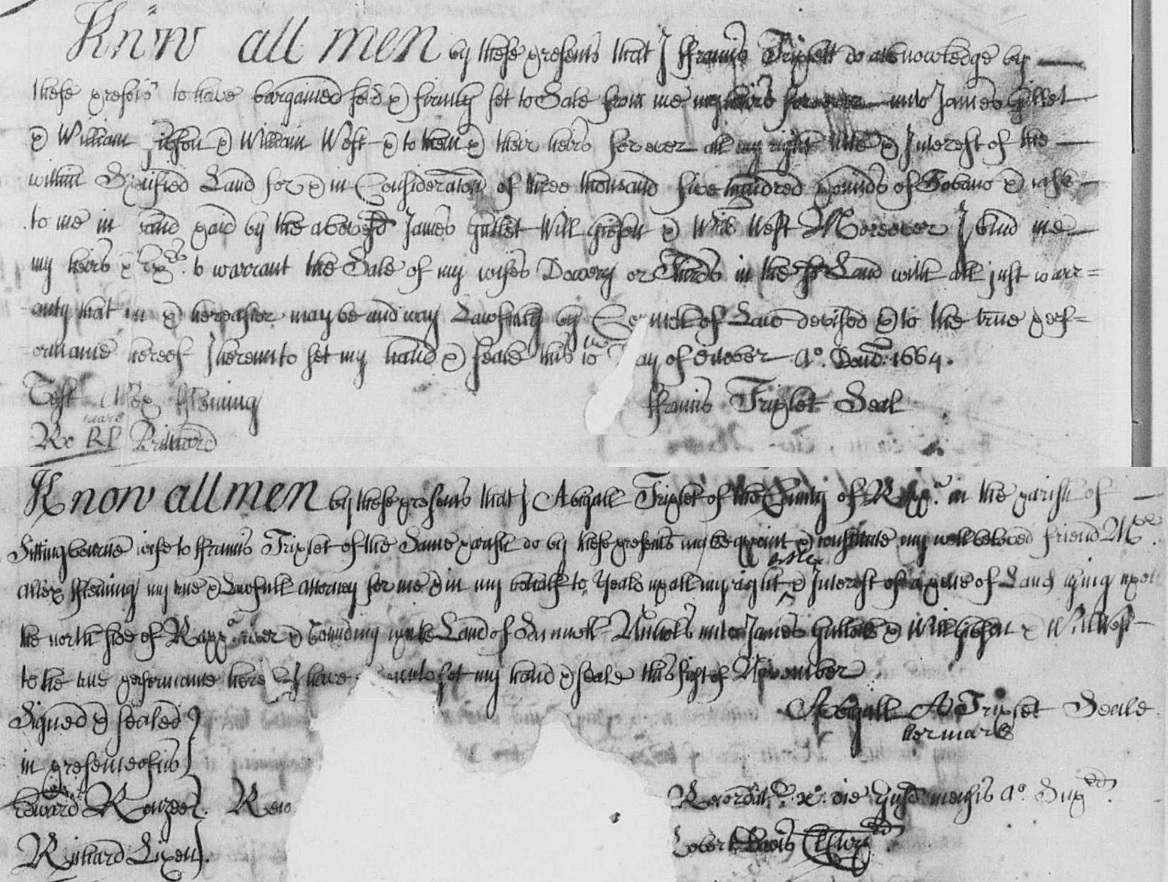 Know all men by these presents that I ffrancis Triplett do acknowledge by
these presents to have bargained sold & firmly set to Sale from me my heirs forever unto James Gullet
& William Gibson & William West & to them & their heirs for ever all my right title & Interest of the
within Specified Land for & in Consideration of three thousand five hundred pounds of Tobacco & caske
to me in hand paid by the abovesd James Gullet Will Gibson & Will West Moreover I bind me
my heirs & Exrs to warrant the Sale of my wifes Dowery or Thirds in the sd Land with all just warr=
anty that in & hereafter may be and may Lawfully by Counsel of Law devised & to the true perf=
ormance hereof I hereunto set my hand & seale this 10th day of October Ao. Domi: 1664.
Test Alex ffleming
ffrancis Triplet Seal
Ro RP Prichard
marke
Know all men by these presents that I Abigall Triplet of the County of Rappa. in the parish of
Sittingbourne wife to ffrancis Triplet of the Same parish do by these presents appoint & constitute my well beloved friend Mr
Alex ffleming my true & Lawfull attorney for me & in my behalfe to yeald up all my right title & Interest of a parcell of Land lying upon
the north side of Rappa. river & bounding upon the Land of Samuell Nichols unto James Gullett & Will Gibson & Will West
to the true performance here of I have unto set my hand & seale this first of November
Signed & sealed
Abigall A Triplet Seale
her mark
in presence of us
Edward Rouzee. Reco
Recordatr. xo. die Ejusd mensis Ao. Supdd.
Richard
Robert Davis Cl Cur